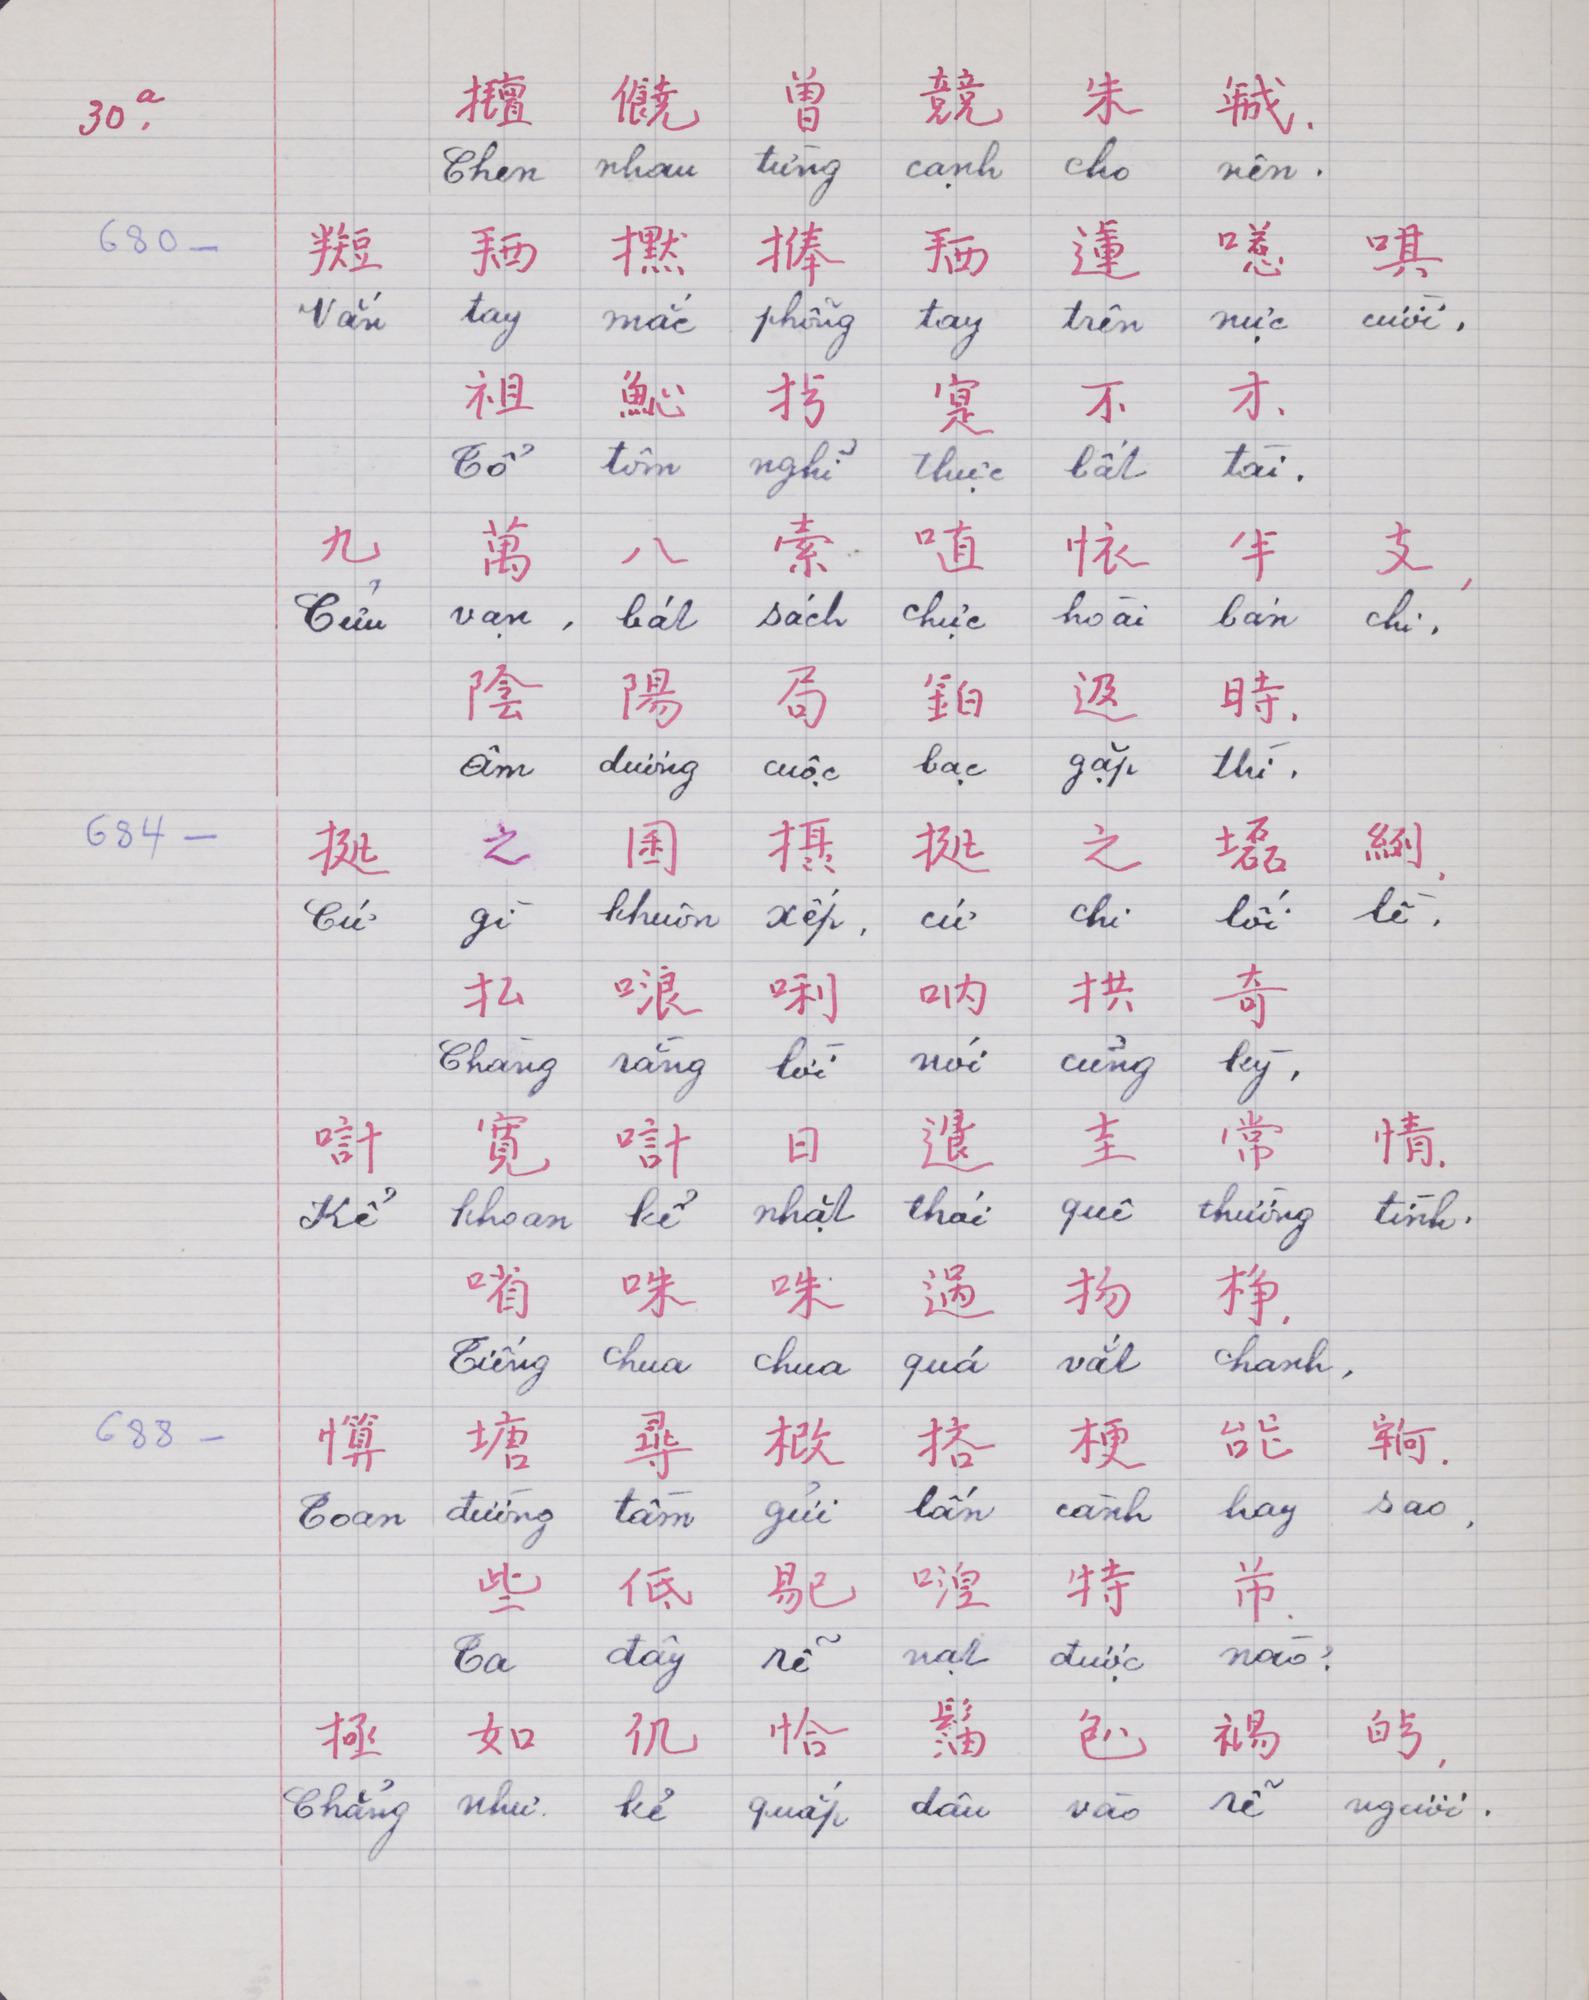 30.a
擅 㒙 曾 競 朱 𢧚.
Chen nhau từng cạnh cho nên.
680 —
𥐆 𢬣 㩽 捧 𢬣 蓮 㗲 唭
Vắn tay mắc phỗng tay trên nực cười,
祖 𩵽 扲 寔 不 才.
Tổ tôm nghỉ thực bất tài.
九 萬 八 索 㗂 怀 半 支,
Cửu vạn, bát sách chực hoài bán chi,
陰 陽 局 鉑 𨒺 時.
Âm dương cuộc bạc gặp thì.
684 —
㨂 之 困 摂 㨂 之 磊 例,
Cứ gì khuôn xếp, cứ chi lối lề,
払 哴 唎 呐 拱 奇
Chàng rằng lời nói cũng kỳ,
𠸥 寬 𠸥 日 退 圭 常 情.
Kể khoan kể nhặt thói quê thường tình.
㗂 咮 咮 過 扬 棦.
Tiếng chua chua quá vắt chanh,
688 —
惮 塘 尋 檄 搭 梗 咍 牢.
Toan đường tầm gửi lấn cành hay sao,
些 低 易 喤 特 芇.
Ta đây rễ nạt được nào?
拯 如 仉 恰 𩯀 𠓨 裼 𠊛,
Chẳng như kẻ quắp dâu vào rễ người.